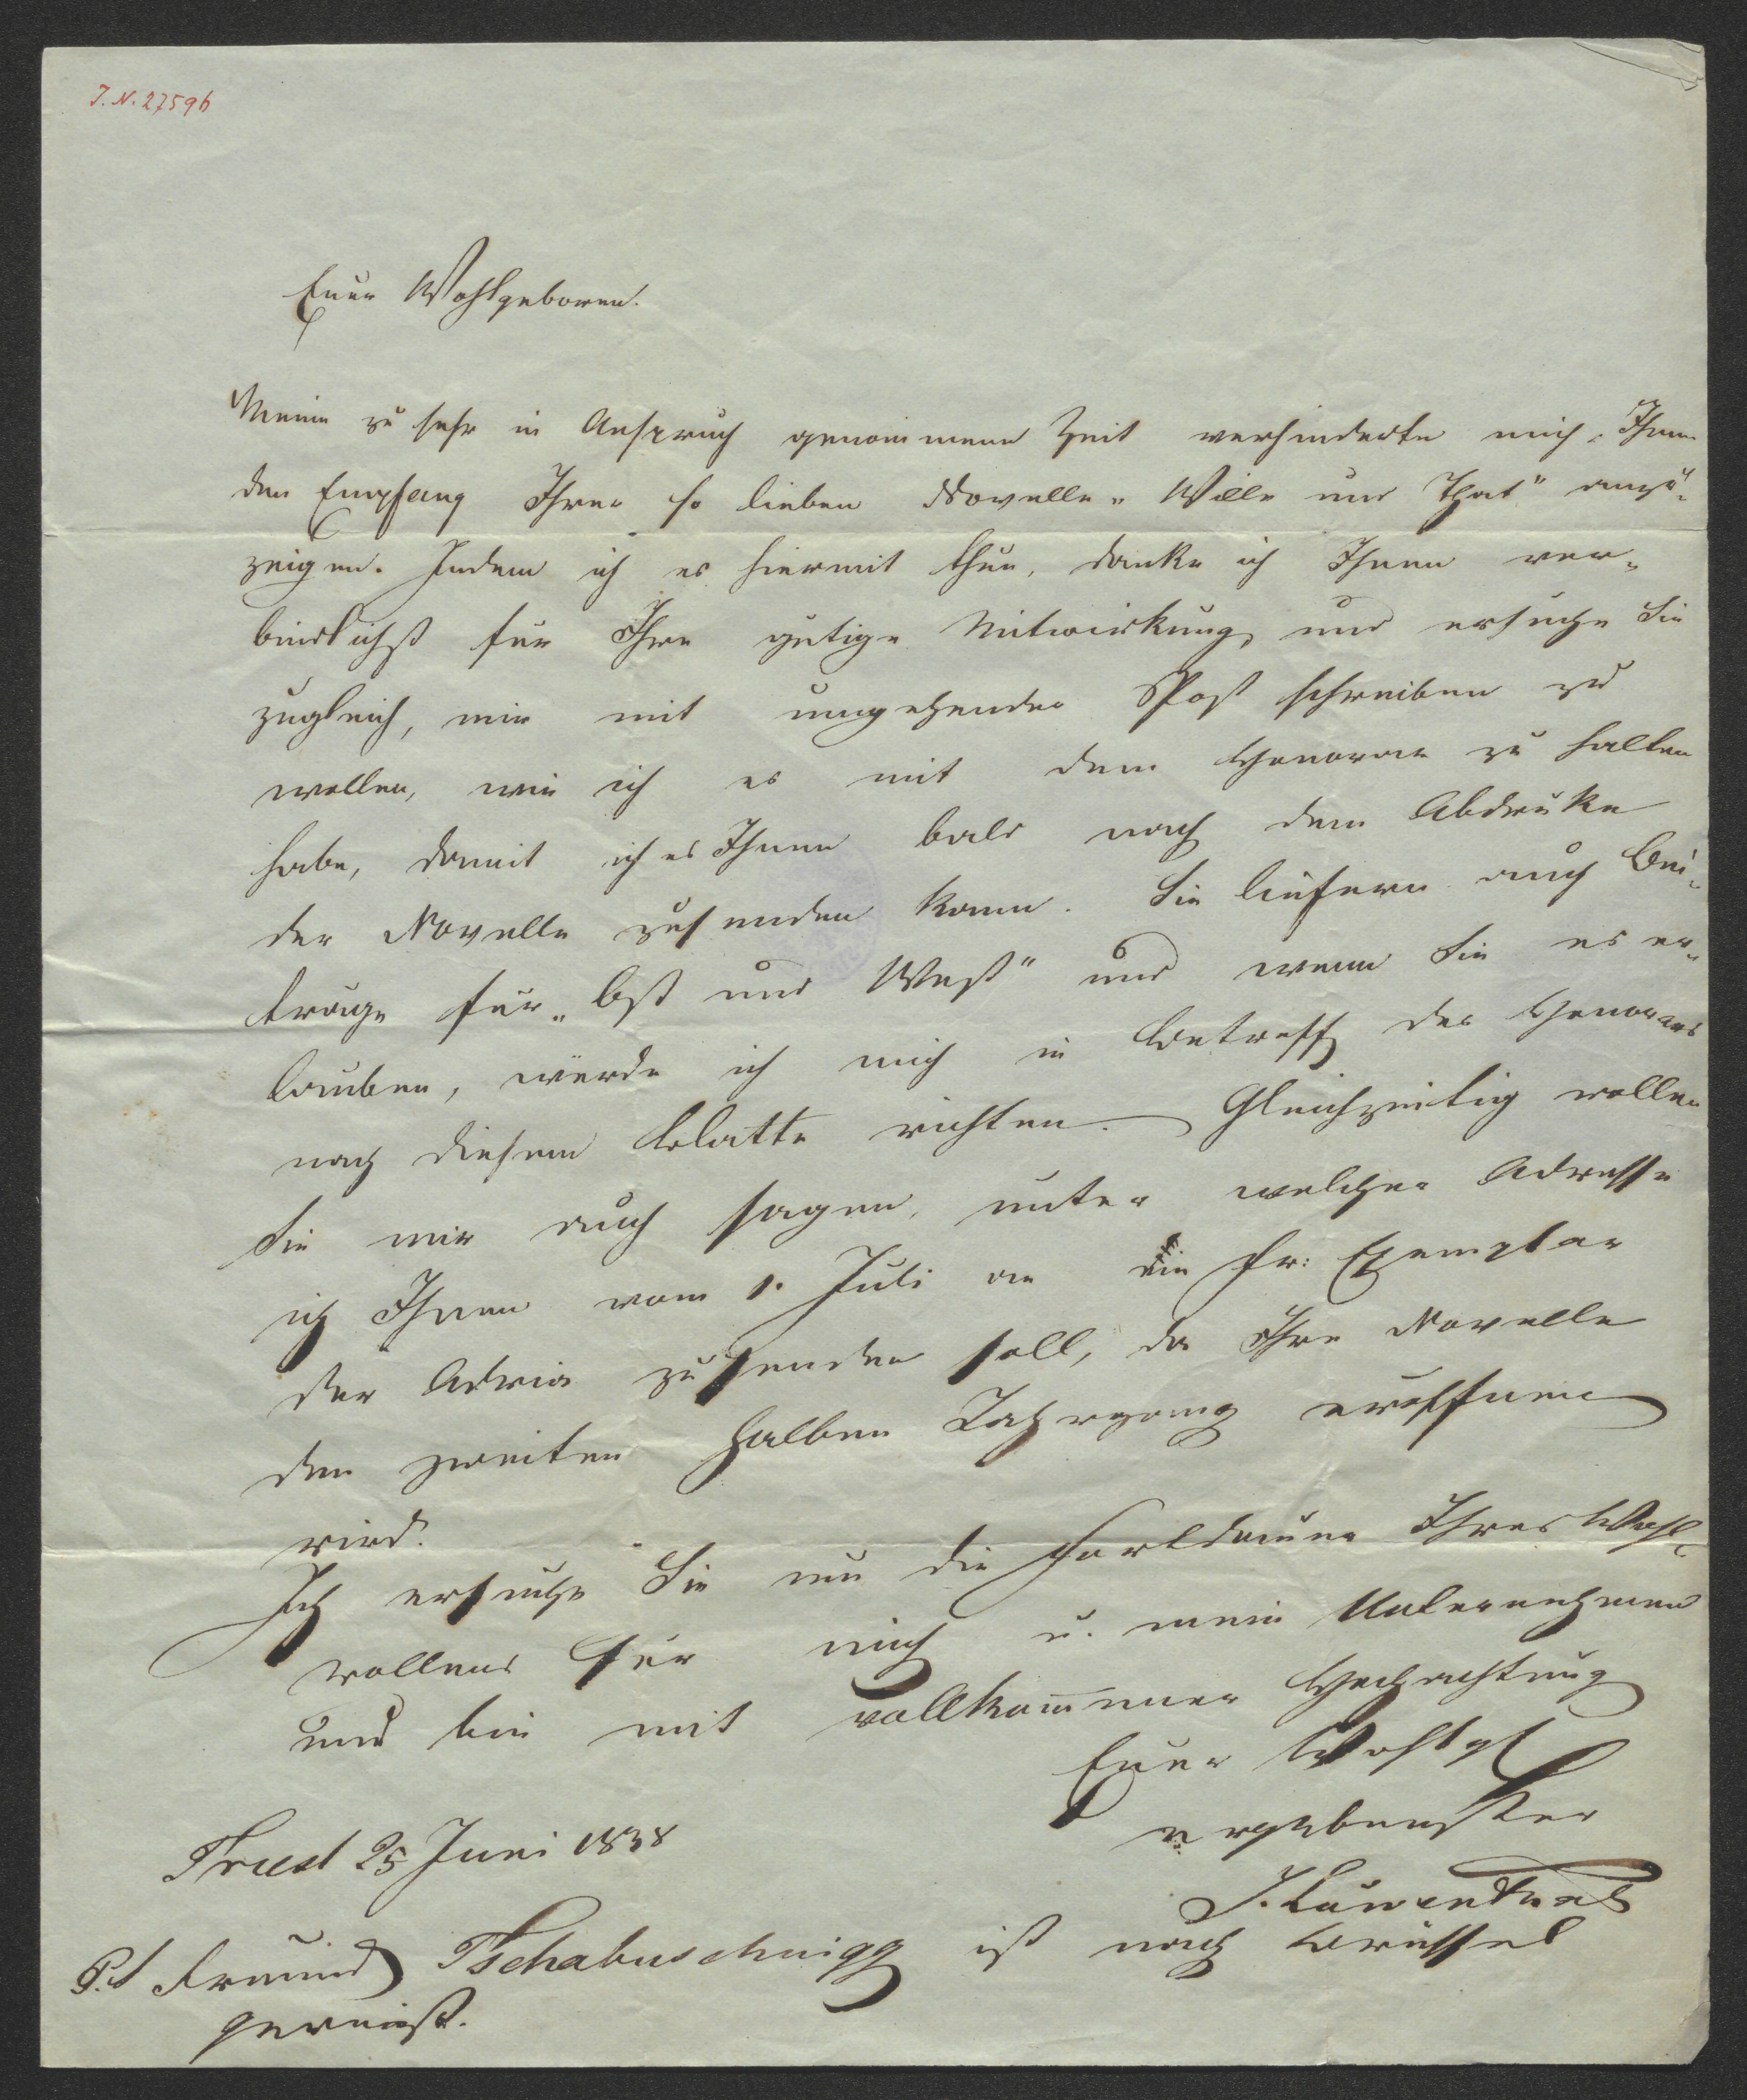 J. N. 27596
Euer Wohlgeboren.
Meine zu sehr in Anspruch genommene Zeit verhinderte mich, Ihnen
den Empfang Ihrer so lieben Novelle „Wille und That" anzu-
zeigen. Indem ich es hiermit thue, danke ich Ihnen ver-
bindlichst für Ihre gütige Mitwirkung, und ersuche Sie
zugleich, mir mit umgehender Post schreiben zu
wollen, wie ich es mit dem Honorar zu halten
habe, damit ich es Ihnen bald nach dem Abdruke
der Novelle zusenden kann. Sie liefern auch Bei-
träge für „Ost und West" und wenn Sie es er-
lauben, würde ich mich in Betreff des Honorars
nach diesem Blatte richten. Gleichzeitig wollen
Sie mir auch sagen, unter welcher Adresse
ich Ihnen vom 1. Juli an ein fr: Exemplar
der Adria zusenden soll, da Ihre Novelle
den zweiten halben Jahrgang eröffnen
wird.
Ich ersuche Sie um die Fortdauer Ihres Wohl-
wollens für mich u. mein Unternehmen
und bin mit vollkommener Hochachtung
Euer Wohlg
ergebenster
J. Löwenthal
Triest 25 Juni 1838
P.S Freund Tschabuschnigg ist nach Brüssel
gereist.